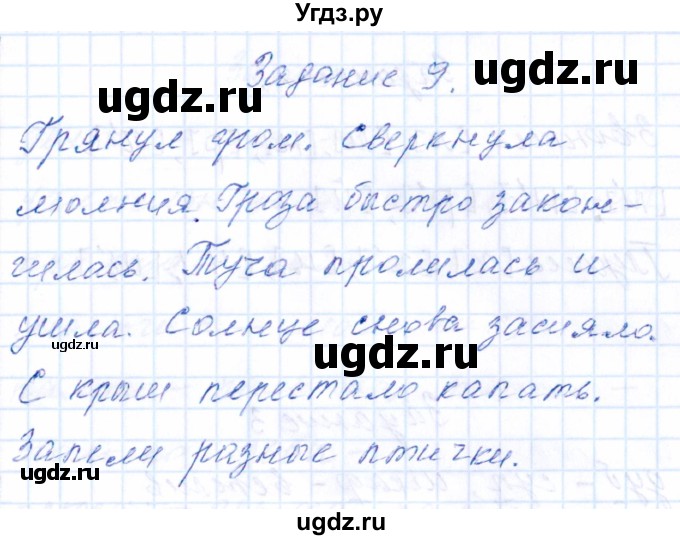 Угдз.ру
Задание 9.
ugdz.ru ugdz.ru
Грянул гром. Сверкнула
молния. Гроза быстро закон-
чилась. Туча пролилась и
ушла. Солнце снова засияло.
ugdz.ru ugdz.ru
С крыш перестало капать.
Запели разные птички.
ugdz.ru
ugdz.ru